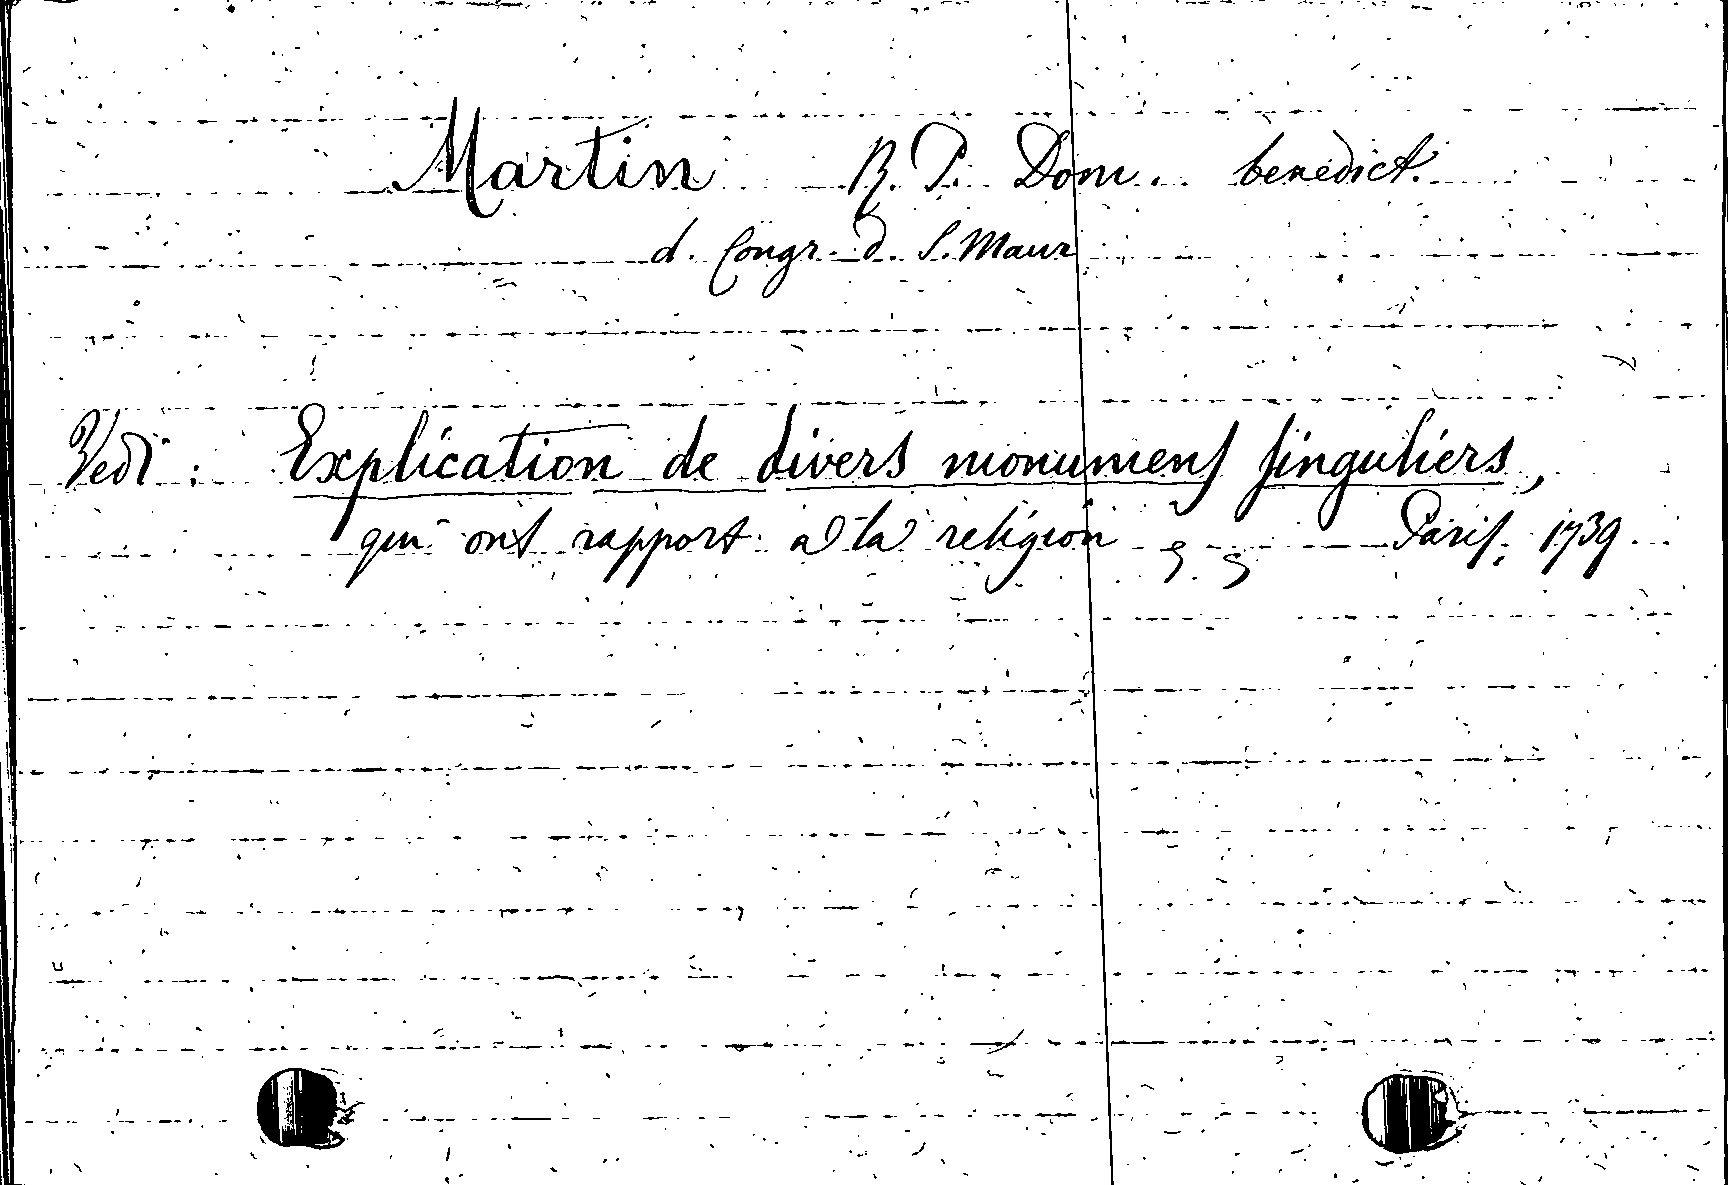 Martin R. P. Dom. benedict.
d. Congr. d. S. Maur
Vedi : Explication de divers monumens singuliers,
qui ont rapport a la religion Paris. 1739.